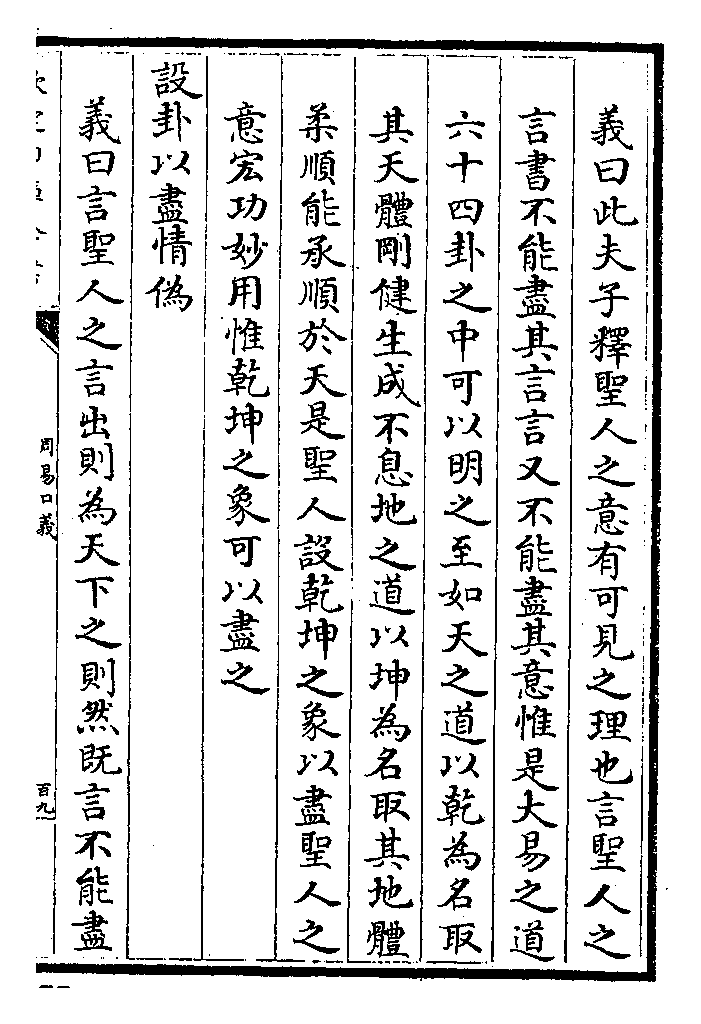 義曰此夫子釋聖人之意有可見之理也言聖人之
言書不能盡其言言又不能盡其意惟是大易之道
六十四卦之中可以明之至如天之道以乾為名取
其天體剛健生成不息地之道以坤為名取其地體
柔順能承順於天是聖人設乾坤之象以盡聖人之
意宏功妙用惟乾坤之象可以盡之
設卦以盡情偽
義曰言聖人之言出則為天下之則然既言不能盡
周易口義
百九